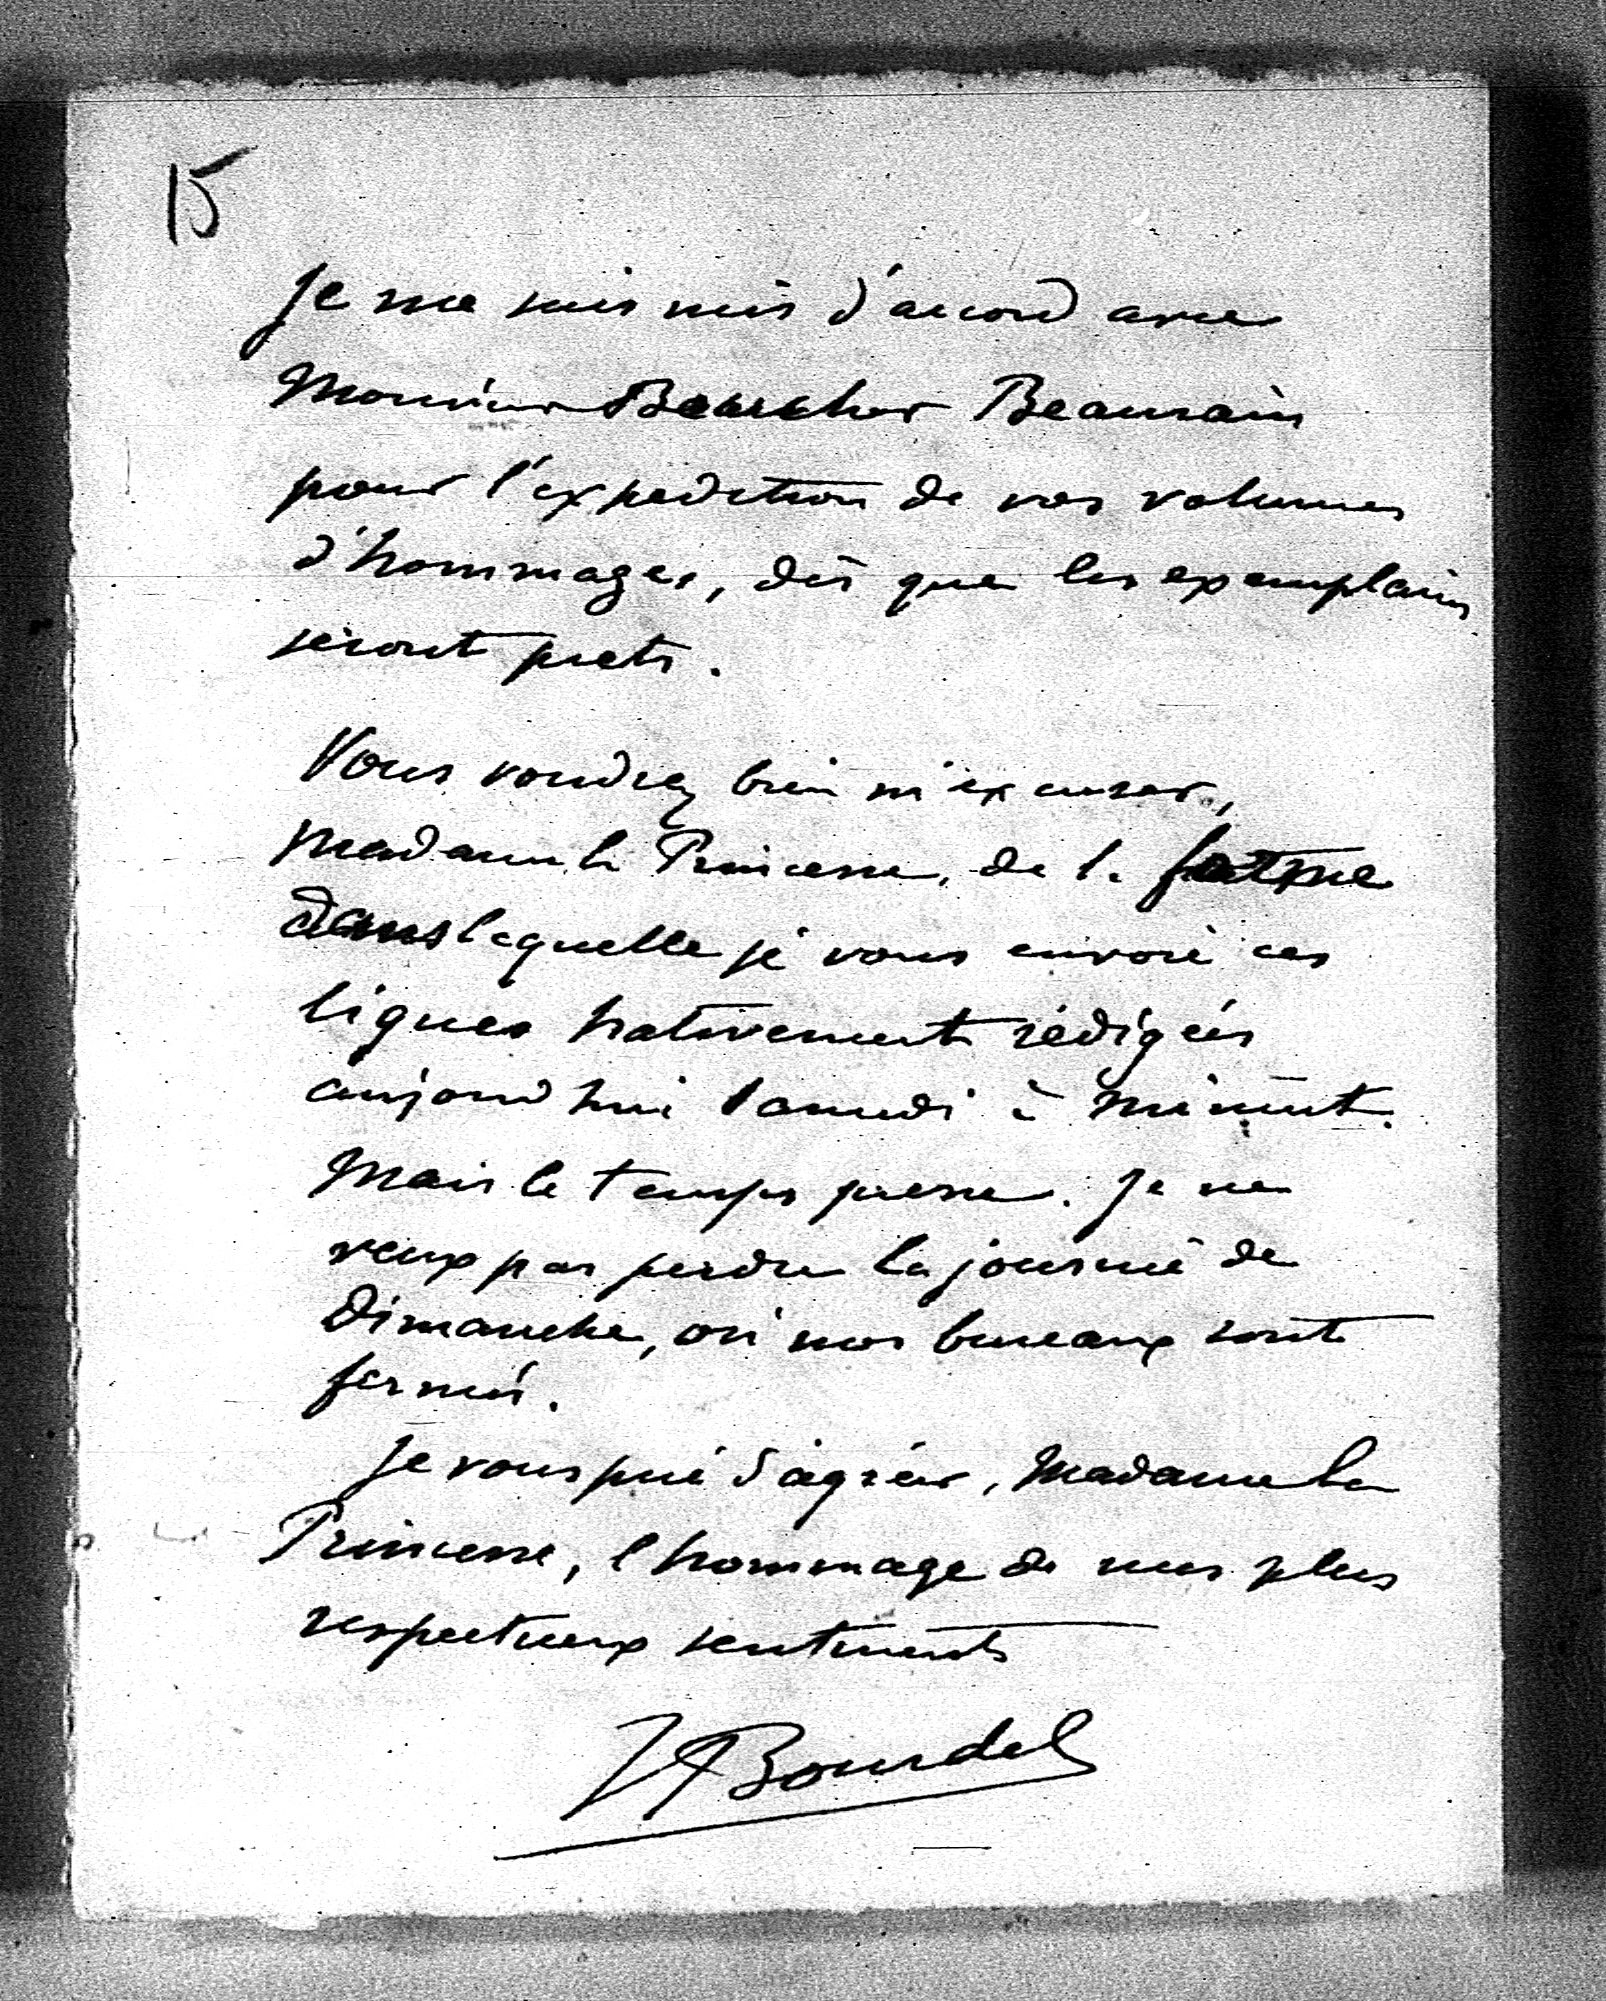 15
Je me suis mis d'accord avec
Monsieur Beaurain
pour l'expedition de vos volumes
d'hommages, dès que les exemplaires
seront prets.
Vous voudrez bien m'excuser,
Madame la Princesse, de la forme
dans laquelle je vous envoie ces
lignes hativement rédigées
aujourd'hui samedi à minuit.
Mais le temps presse. Je ne
veux pas perdre la journée de
Dimanche, où nos bureaux sont
fermés.
Je vous prie d'agréer, Madame la
Princesse, l'hommage de mes plus
respectueux sentiments
Bourdel